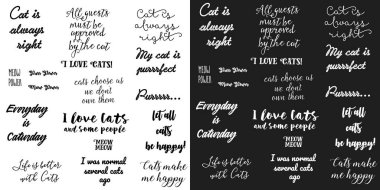 Cat is
always
right
All guests
must be
approved
by the cat
Cat is
always
right
My cat is
purrrfect
"I LOVE CATS!
MEOW
POWER
cats choose us
we dont
own them
Purrrrr...
Everyday
is
Caturday
I love Cats
and some people
MEOW
MEOW
let all
cats
be happy!
Life is better
with Cats
I was normal
several cats
ago
Cats make
me happy
Cat is
always
right
All guests
must be
approved
by the cat
Cat is
always
right
My cat is
purrrfect
"I LOVE CATS!
MEOW
POWER
cats choose us
we dont
own them
Purrrrr...
Everyday
is
Caturday
I love Cats
and some people
MEOW
MEOW
let all
cats
be happy!
Life is better
with Cats
I was normal
several cats
ago
Cats make
me happy